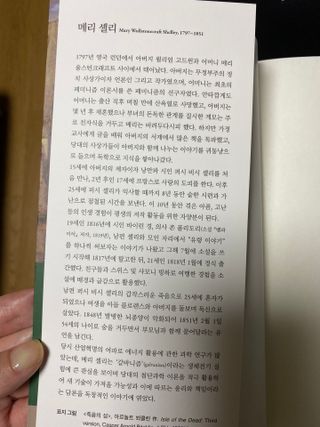 메리 셸리 Mary Wollstonecraft Shelley, 1797-1851
1797년 영국 런던에서 아버지 윌리엄 고드윈과 어머니 메리
울스턴크래프트 사이에서 태어났다. 아버지는 무정부주의 정
치 사상가이자 언론인 그리고 작가였으며, 어머니는 최초의
페미니즘 이론서를 쓴 페미니즘의 선구자였다. 안타깝게도
어머니는 출산 직후 며칠 만에 산욕열로 사망했고, 아버지는
몇 년 후 재혼했으나 부녀의 돈독한 관계를 질시한 계모는 주
로 친자식을 거두고 메리는 버려두다시피 했다. 하지만 가정
교사에게 글을 배워 아버지의 서재에서 많은 책을 독파했고,
당대의 사상가들이 아버지와 함께 나누는 이야기를 귀동냥으
로 들으며 독학으로 지식을 쌓아나갔다.
15세에 아버지의 제자이자 낭만파 시인 퍼시 비시 셸리를 처
음 만나, 2년 후인 17세에 프랑스로 사랑의 도피를 한다. 이후
25세에 퍼시 셸리가 익사할 때까지 8년 동안 숱한 시련과 가
난으로 점철된 시간을 보낸다. 이 10년 동안 겪은 아픔, 고난
등의 인생 경험이 평생의 저작 활동을 위한 자양분이 된다.
19세인 1816년에 시인 바이런 경, 의사 존 폴리도리(소설 『뱀파
이어』 저자, 1819년), 남편 셸리와 모인 자리에서 "유령 이야기"
를 하나씩 써보자는 이야기가 나왔고 그해 7월에 소설을 쓰
기 시작해 1817년에 탈고한 뒤, 21세인 1818년 1월에 정식 출
간했다. 친구들과 스위스 및 샤모니 빙하로 여행한 경험을 소
설에 배경과 글감으로 활용했다.
남편 퍼시 비시 셸리의 갑작스러운 죽음으로 25세에 혼자가
되었으나 여생을 아들 플로렌스와 아버지를 돌보며 독신으로
살았다. 1848년 발병한 뇌종양이 악화되어 1851년 2월 1일
54세의 나이로 숨을 거두면서 부모님과 함께 묻어달라는 유
언을 남긴다.
당시 산업혁명의 여파로 에너지 활용에 관한 과학 연구가 많
았는데, 메리 셸리는 '갈바니즘'(galvanism)이라는 생체전기 실
험에 큰 관심을 보이며 당대의 첨단과학 이론을 적극 활용하
여 새 기술이 가져올 가능성과 이에 따르는 윤리와 책임이라
는 담론을 독창적인 이야기에 엮어냈다.
표지 그림 〈죽음의 섬〉, 아르놀트 뵈클린 作. Isle of the Dead: Third
version, Caspar Arnold